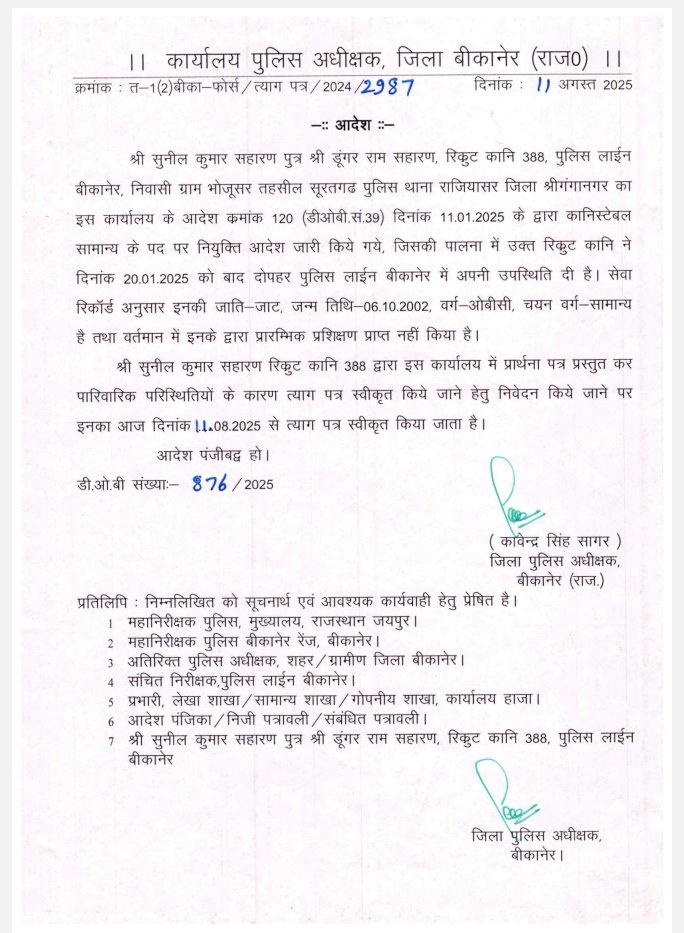 ।। कार्यालय पुलिस अधीक्षक, जिला बीकानेर (राज0) ।।
क्रमांक : त–1(2)बीका–फोर्स/त्याग पत्र/2024/2987 दिनांक : 11 अगस्त 2025
–:: आदेश ::–
श्री सुनील कुमार सहारण पुत्र श्री डूंगर राम सहारण, रिकुट कानि 388, पुलिस लाईन
बीकानेर, निवासी ग्राम भोजूसर तहसील सूरतगढ पुलिस थाना राजियासर जिला श्रीगंगानगर का
इस कार्यालय के आदेश क्रमांक 120 (डीओबी.सं.39) दिनांक 11.01.2025 के द्वारा कानिस्टेबल
सामान्य के पद पर नियुक्ति आदेश जारी किये गये, जिसकी पालना में उक्त रिकुट कानि ने
दिनांक 20.01.2025 को बाद दोपहर पुलिस लाईन बीकानेर में अपनी उपस्थिति दी है। सेवा
रिकॉर्ड अनुसार इनकी जाति–जाट, जन्म तिथि–06.10.2002, वर्ग–ओबीसी, चयन वर्ग–सामान्य
है तथा वर्तमान में इनके द्वारा प्रारम्भिक प्रशिक्षण प्राप्त नहीं किया है।
श्री सुनील कुमार सहारण रिकुट कानि 388 द्वारा इस कार्यालय में प्रार्थना पत्र प्रस्तुत कर
पारिवारिक परिस्थितियों के कारण त्याग पत्र स्वीकृत किये जाने हेतु निवेदन किये जाने पर
इनका आज दिनांक 11.08.2025 से त्याग पत्र स्वीकृत किया जाता है।
आदेश पंजीबद्व हो।
डी.ओ.बी संख्याः– 876/2025
( कावेन्द्र सिंह सागर )
जिला पुलिस अधीक्षक,
बीकानेर (राज.)
प्रतिलिपि : निम्नलिखित को सूचनार्थ एवं आवश्यक कार्यवाही हेतु प्रेषित है।
1 महानिरीक्षक पुलिस, मुख्यालय, राजस्थान जयपुर।
2 महानिरीक्षक पुलिस बीकानेर रेंज, बीकानेर।
3 अतिरिक्त पुलिस अधीक्षक, शहर/ग्रामीण जिला बीकानेर।
4 संचित निरीक्षक,पुलिस लाईन बीकानेर।
5 प्रभारी, लेखा शाखा/सामान्य शाखा/गोपनीय शाखा, कार्यालय हाजा।
6 आदेश पंजिका/निजी पत्रावली/संबंधित पत्रावली।
7 श्री सुनील कुमार सहारण पुत्र श्री डूंगर राम सहारण, रिकुट कानि 388, पुलिस लाईन
बीकानेर
जिला पुलिस अधीक्षक,
बीकानेर।